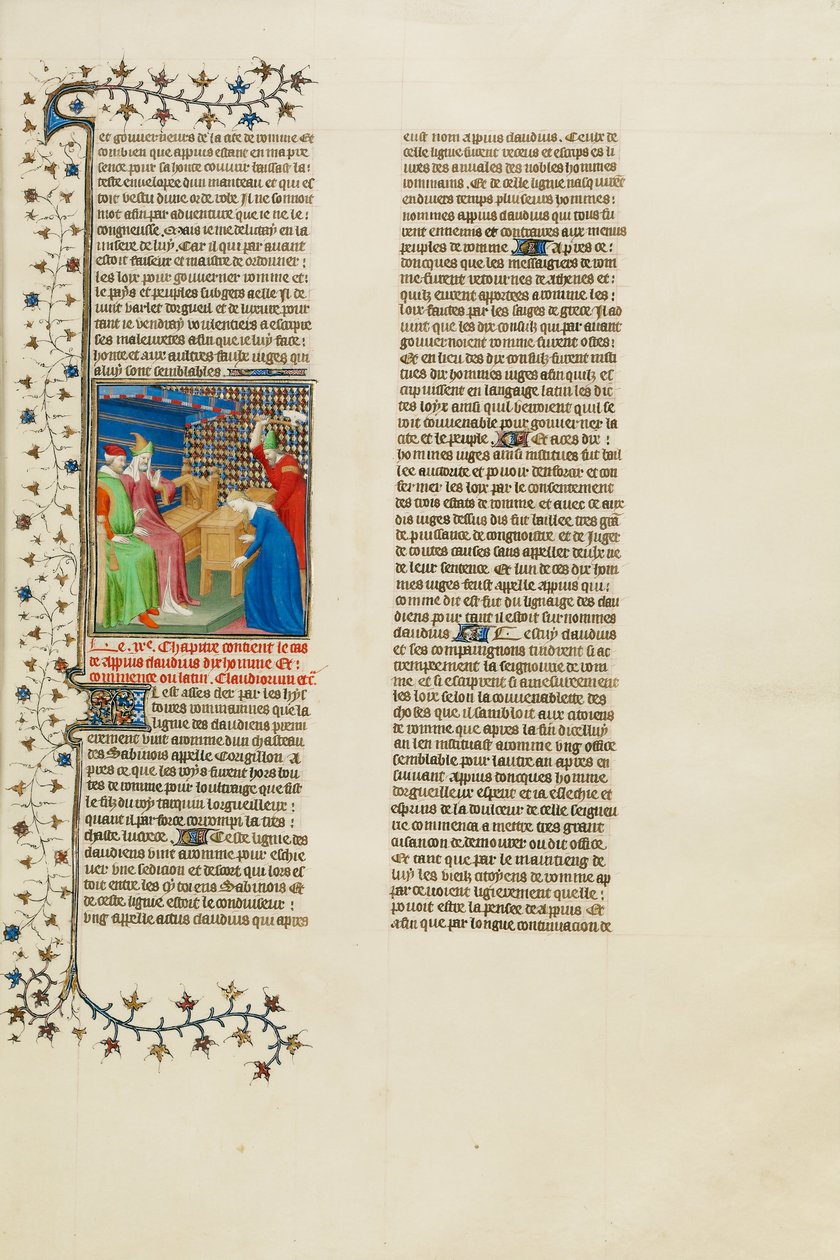 et gouverneurs de la cite de romme Et
combien que appius estant en ma pre
sence pour sa honte couvrir laissast la:
teste envelopee dun manteau et qui es
toit vestu dune orde robe Il ne sonnoit
mot afin par adventure que ie ne le:
congneusse. Mais ie me delictay en la
misere de luy. Car il qui par avant
estoit faiseur et maistre de ordonner:
les loix pour gouverner romme et:
le pays et peuples subgets a elle Il de
vint varlet dorgueil et de luxure pour
tant ie vendray voulentiers a escripre
ses maleurtes afin que ie luy face:
honte et aux aultres faulx iuges qui
a luy sont semblables.
Le .iiie. Chapitre contient le cas
de Appius claudius dix homme Et:
commence ou latin. Claudiorum etc.
Il est asses cler par les hys
toires rommaines que la
ligne des claudiens premi
erement vint a romme dun chasteau
des Sabinois appelle Corigillon A
pres ce que les roys furent hors bou
tes de romme pour loultraige que fist
le filz du roy tarquin lorgueilleux:
quant il par force corrompi la tres:
chaste lucrece. Ceste lignie des
claudiens vint a romme pour eschie
ver une sedicion et descort qui lors es
toit entre les cytoiens Sabinois Et
de ceste lignie estoit le conduiseur:
ung appelle actus claudius qui apres
eust nom appius claudius. Ceulx de
celle ligne furent receus et escrips es li
ures des annales des nobles hommes
rommains. Et de celle lignie nasquirent
en divers temps pluseurs hommes:
nommes appius claudius qui tous fu
rent ennemis et contraires aux menus
peuples de romme Apres ce:
doncques que les messaigiers de rom
me furent retournes de athenes et:
quilz eurent apportees a romme les:
loix faictes par les saiges de grece Il ad
uint que les dix consulz qui par avant
gouvernoient romme furent ostes:
Et en lieu des dix consulz furent insti
tues dix hommes iuges afin quilz es
cripuissent en langaige latin les dic
tes loyx ainsi quil verroient quil se
roit couvenable pour gouverner la
cite et le peuple. Et a ces dix:
hommes iuges ainsi institues fut bail
lee auctorite et povoir denforcir et con
fermer les loix par le consentement
des trois estats de romme et avec ce aux
dis iuges dessus dis fut baillee tres grant
de puissance de congnoistre et de Juger
de toutes causes sans appeller deulx ne
de leur sentence. Et lun de ces dix hom
mes iuges feust appelle Appius qui:
comme dit est fut du lignaige des clau
diens pour tant il estoit surnommes
claudius Cestuy claudius
et ses compaignons tindrent si at
trempeement la seigneurie de rom
me et si escriprent si amesureement
les loix selon la couvenablete des
choses que il sambloit aux citoiens
de romme que apres la fin dicelluy
an len instituast a romme ung office
semblable pour lautre an apres en
suivant Appius doncques homme
dorgueilleux esperit et ia esleechie et
espruis de la doulceur de celle seigneu
rie commenca a mettre tres grant
cusancon de demourer ou dit office
Et tant que par le maintieng de
luy les vieilz citoyens de romme ap
parcevoient ligierement quelle:
povoit estre la pensee de Appius Et
afin que par longue continuacion de